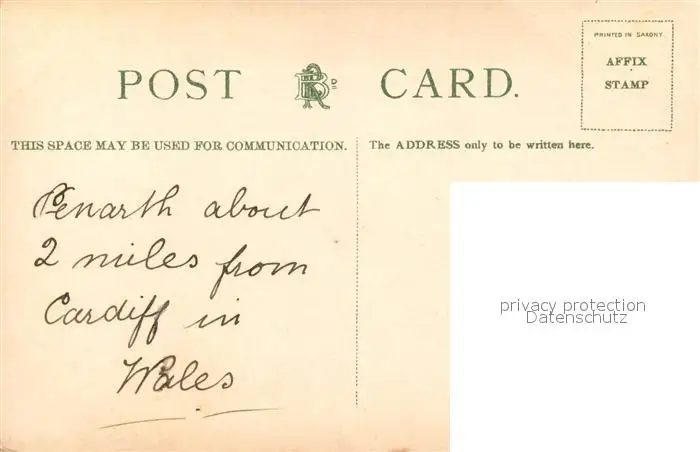 PRINTED IN SAXONY.
AFFIX
STAMP
POST CARD.
THIS SPACE MAY BE USED FOR COMMUNICATION.
The ADDRESS only to be written here.
Penarth about
2 miles from
Cardiff in
Wales
privacy protection
Datenschutz